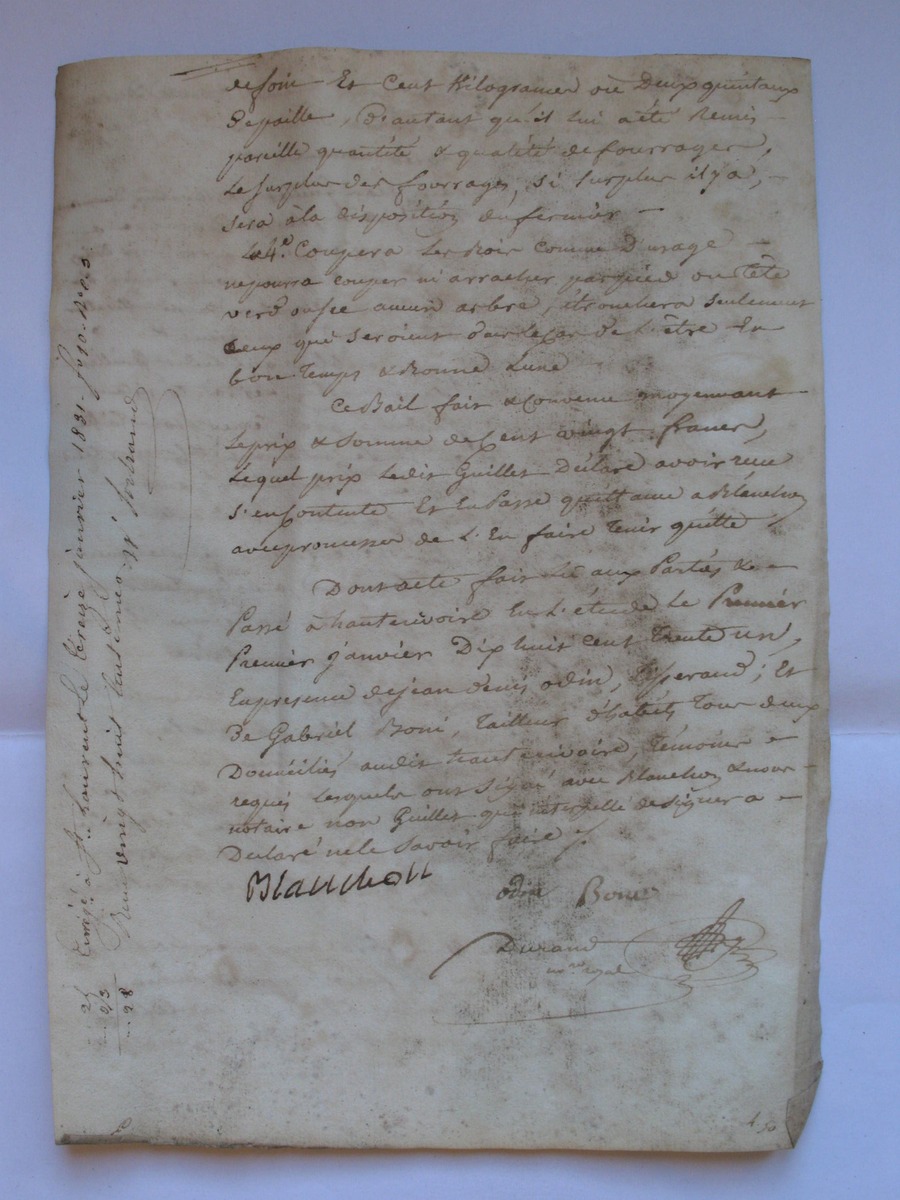 de foin Et Cent Kilogrames ou Deux quintaux
De paille, D'autant qu'il lui a été Remis
pareille quantité & qualité de fourrages,
Le surplus des fourrages, si surplus il y a,
sera à la disposition du fermier
4°. Coupera Les Bois comme D'usage
ne pourra couper ni arracher par pied ou tête
verd ou sec aucun arbre, étronchera seulement
Ceux qui seroient dans Le Cas de L'être En
bon Temps & Bonne Lune
Ce Bail fait & Convenu moyennant
Le prix & Somme de Cent vingt francs,
Lequel prix Ledit Guillet Déclare avoir reçu
s'en Contente Et En Passe quittance a Blanchon
avec promesse de L'En faire Tenir quitte
Dont acte fait Lu aux Parties &
Passé à hauterivoire En L'étude Le Premier
Premier Janvier Dix huit cent Trente un,
En presence de jean denis odin, Tisserand; Et
De Gabriel Boni, Tailleur d'habits Tous deux
Domiciliés audit hauterivoire, témoins
requis lesquels ont signé avec Blanchon & nous
notaire non Guillet qui interpellé de signer a
Déclaré ne le Savoir faire
Blanchon
odin Boni
Durand
nre royal
Enregé à St. Laurent le treize janvier 1831. fo 90. Ro
Reçu vingt huit centimes
28